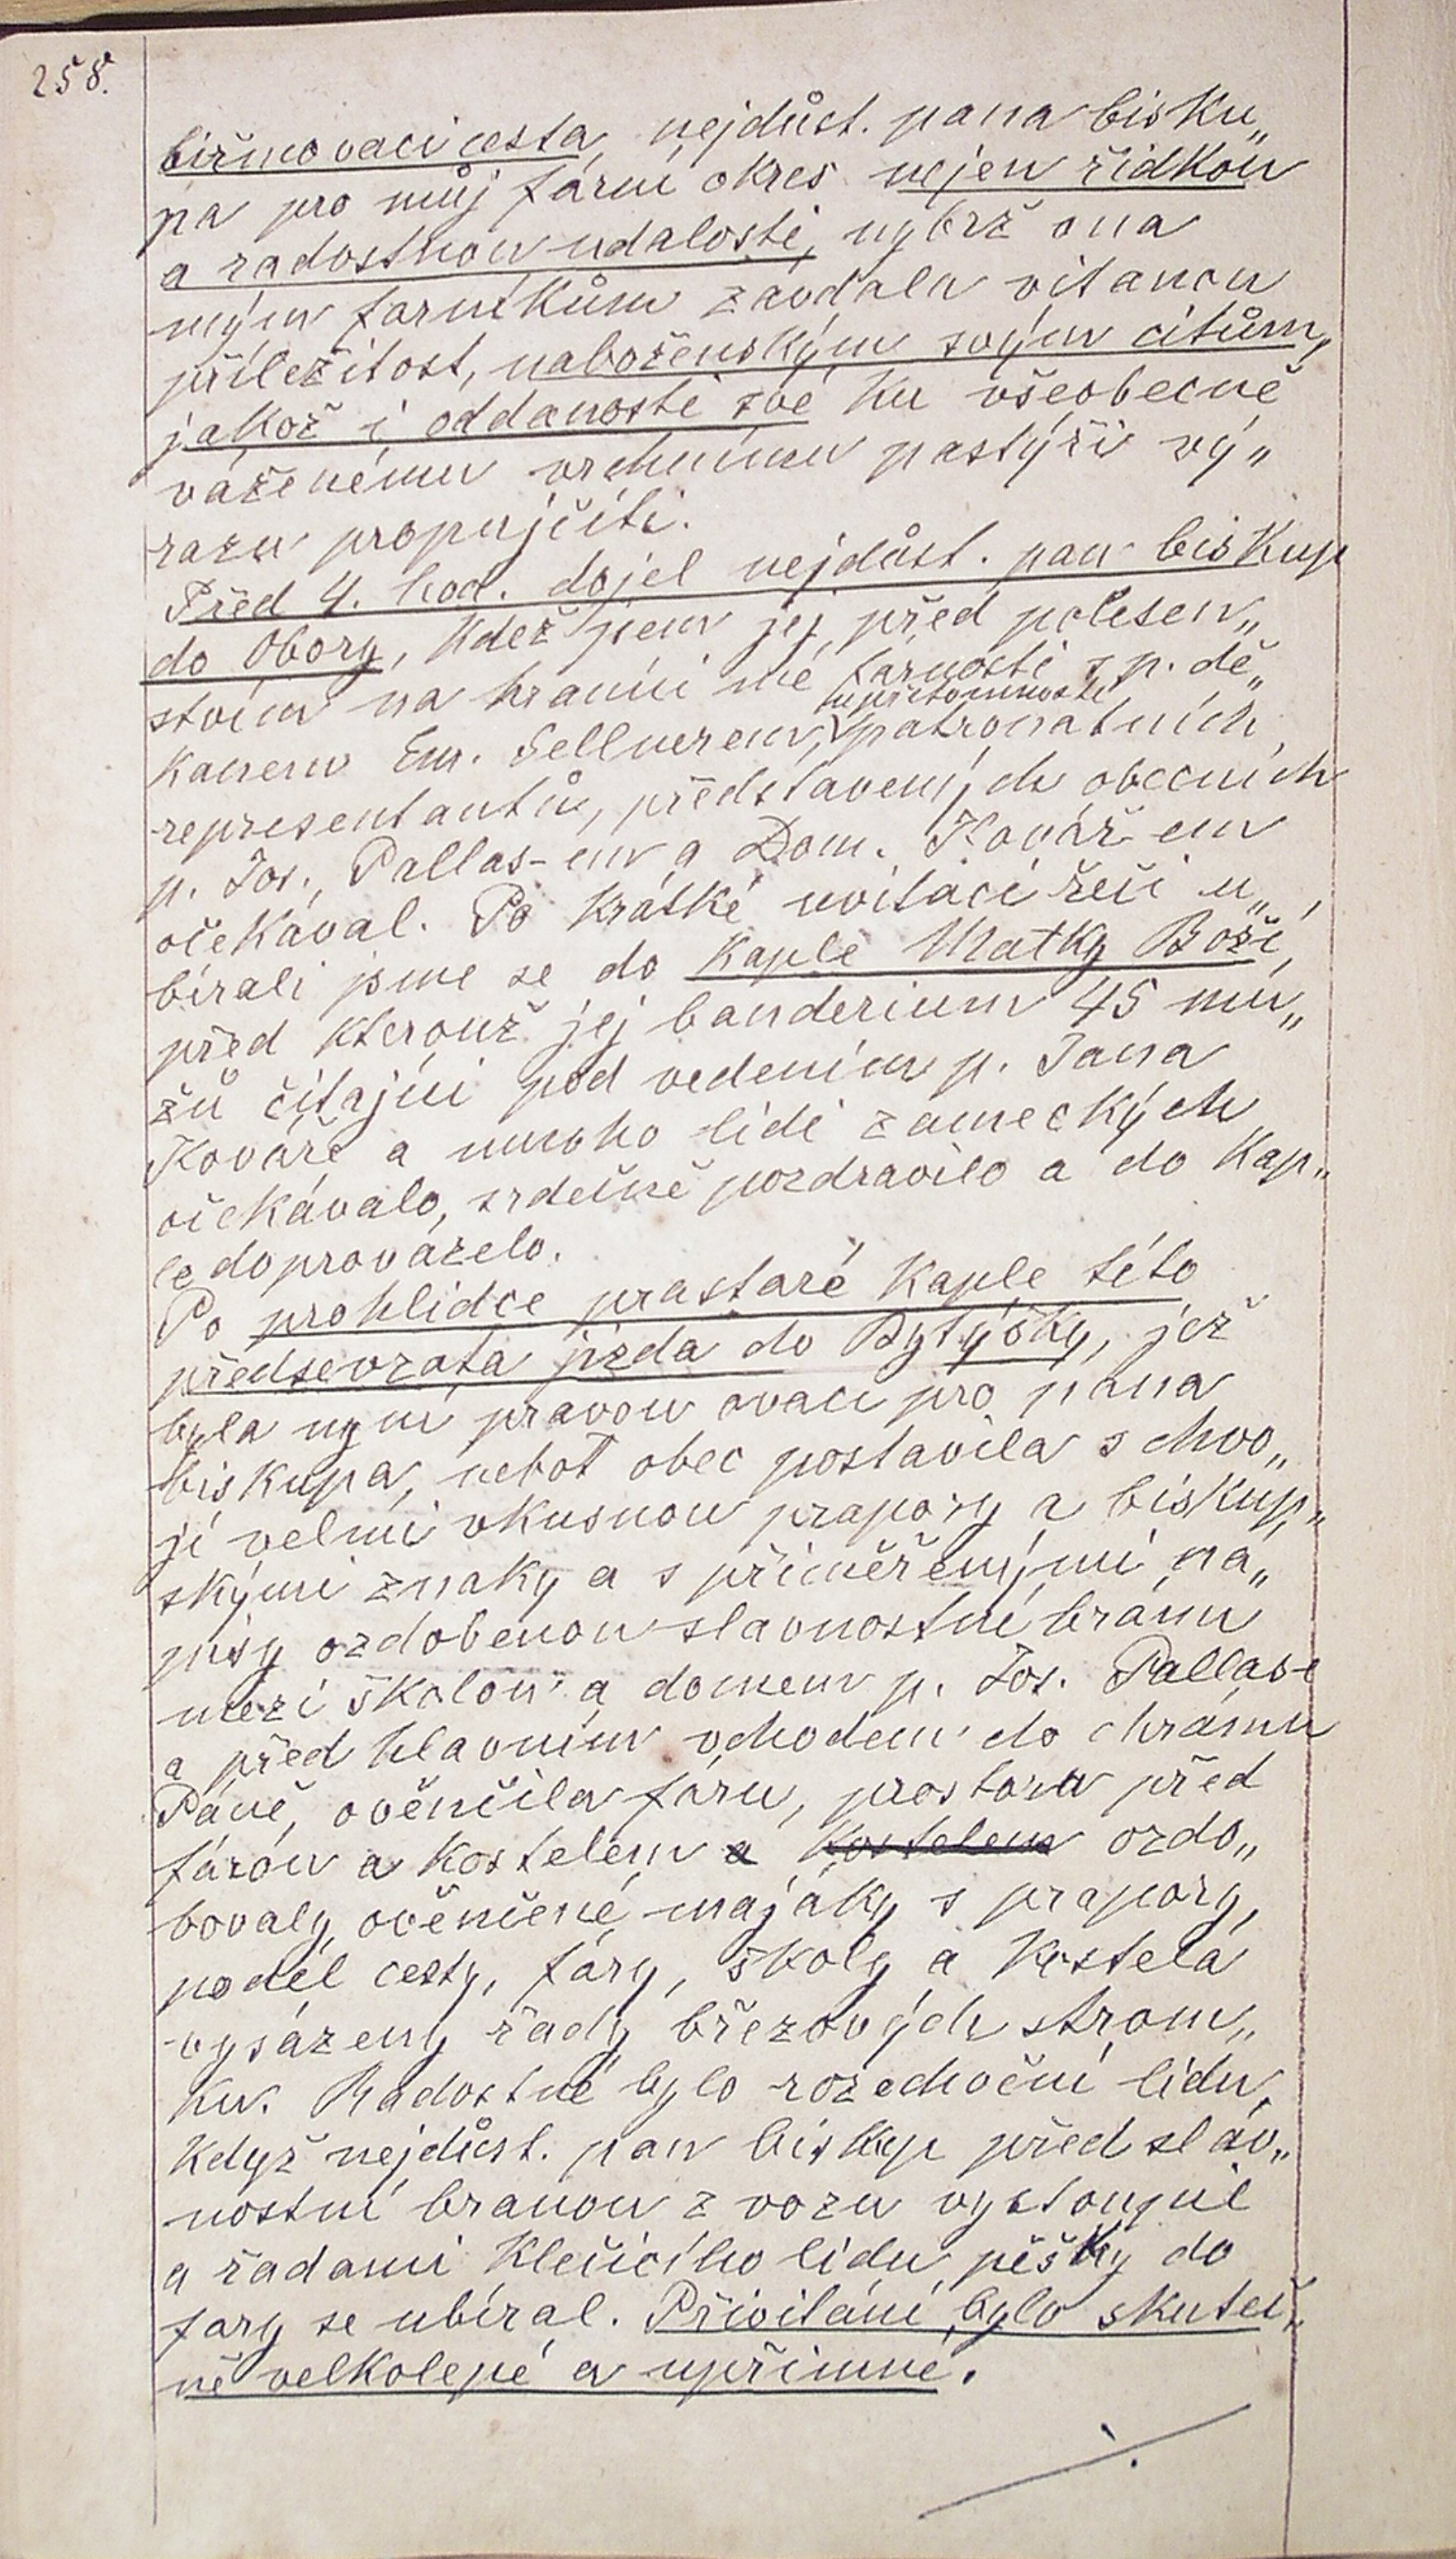 258.
biřmovací cesta nejdůst. pana bisku„
pa pro můj farní okres nejen řídkou
a radostnou událostí, nýbrž ona
mým farníkům zavdala vítanou
příležitost, náboženským svým citům,
jakož i oddanosti své ku všeobecně
váženému vrchnímu pastýři vý„
razu propůjčiti.
Před 4. hod. dojel nejdůst. pan biskup
do Obory, kdež jsem jej před polesen„
stvím na hranici mé farnosti s p. dě„
kanem Em. Sellnerem, v přítomnosti patronatních
representantů, představených obecních
p. Jos. Pallas-em a Dom. Kovářem
očekával. Po krátké uvítací řeči u„
bírali jsme se do kaple Matky Boží,
před kterouž jej banderium 45 mu„
žů čítající pod vedením p. Jana
Kováře a mnoho lidí zámeckých
očekávalo, srdečně pozdravilo a do kap„
le doprovázelo.
Po prohlídce prastaré kaple této
předsevzata jízda do Bytýšky, jež
byla nyní pravou ovací pro pana
biskupa, neboť obec postavila s chvo„
jí velmi vkusnou prapory a biskup„
skými znaky a s přiměřenými ná„
pisy ozdobenou slavnostní bránu
mezi školou a domem p. Jos. Pallas-e
a před hlavním vchodem do chrámu
Páně, ověnčila faru, prostoru před
farou a kostelem a kostelem ozdo„
bovaly ověnčené majáky s prapory,
podél cesty, fary, školy a kostela
vysázeny řady březových strom„
ků. Radostné bylo rozechvění lidu,
když nejdůst. pan biskup před sláv„
nostní branou z vozu vystoupil
a řadami klečícího lidu pěšky do
fary se ubíral. Přivítání bylo skuteč„
ně velkolepé a upřímné.
./.